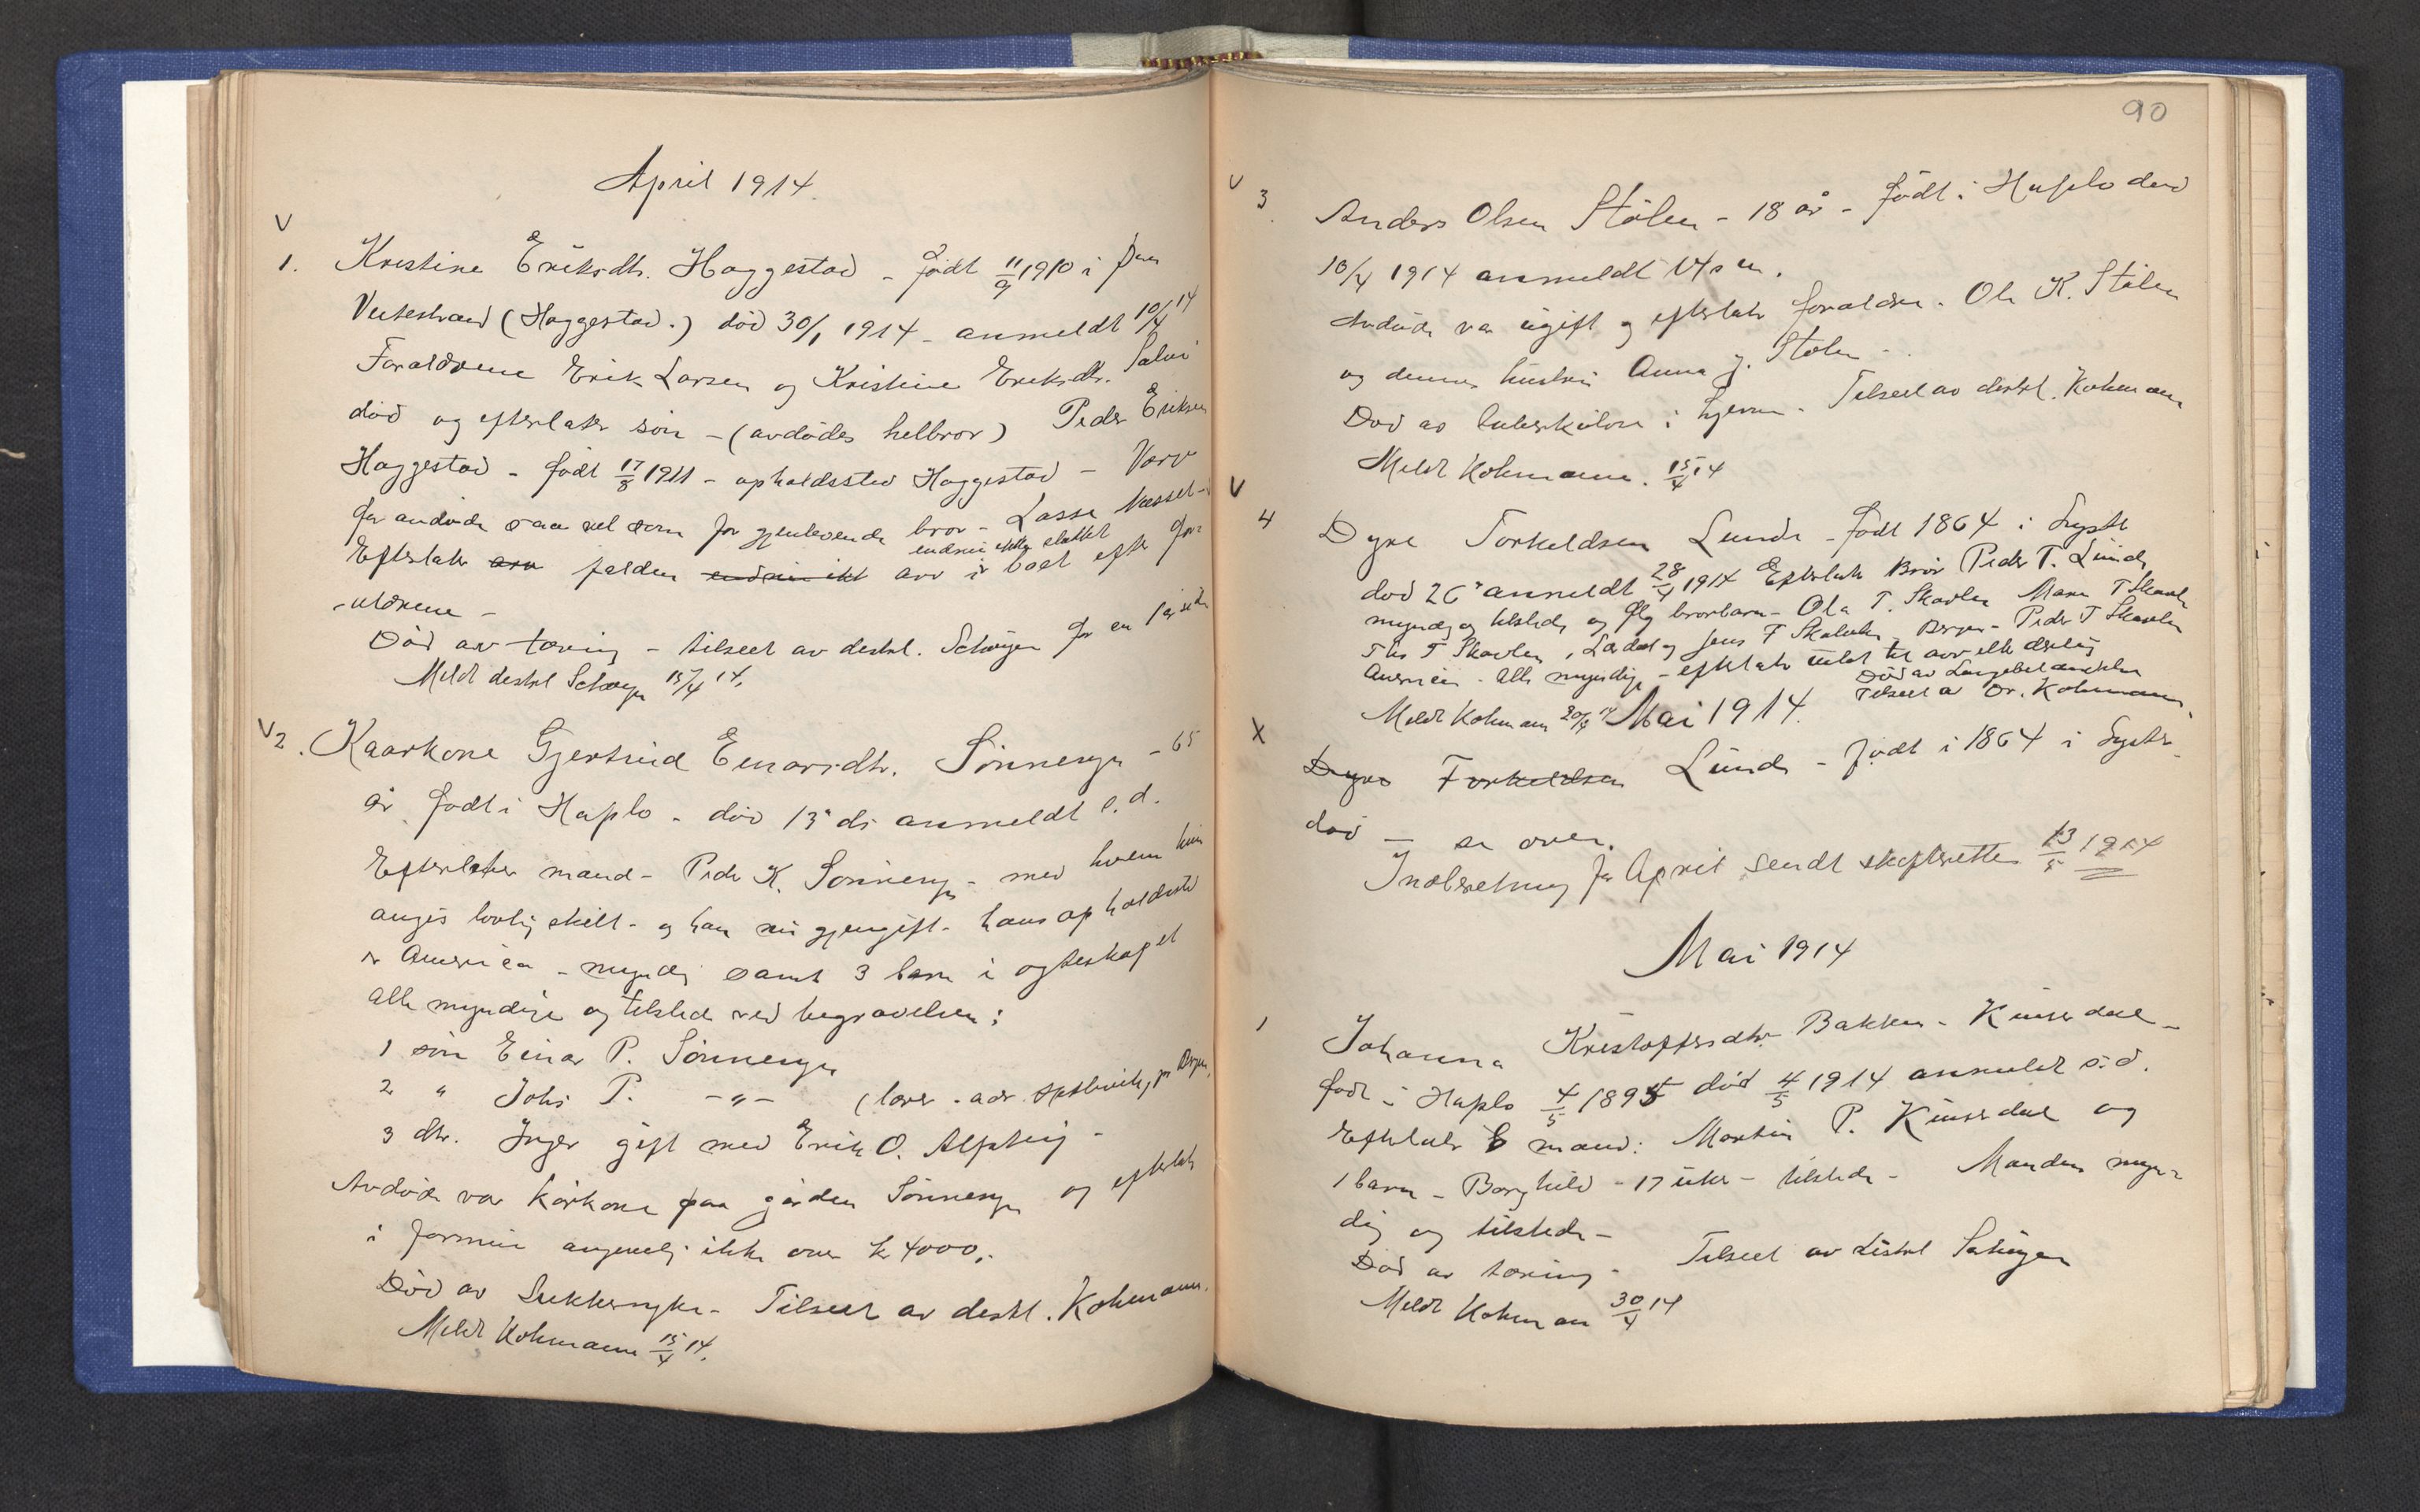 April 1914.
V
1. Kristine Eriksdtr. Haggestad - født 11/9 1910 i
Veitestrand (Haggestad.) død 30/1 1914 - anmeldt 10/4 14
Forældrene Erik Larsen og Kristine Eriksdtr.
død og efterlater søn - (avdødes helbror) Peder Eriksen
Haggestad - født 17/8 1911 - opholdssted Haggestad -
for avdøde saa vel som for gjenlevende bror - Lasse
endnu ikke sluttet
Efterlater arv endnu ikke arv i boet efter for-
ældrene -
Død av tæring - tilseet av distrl. for en
Meldt distrl 15/4 14.
V 2. Kaarkone Gjertrud Einarsdtr. Sønneseyn - 65
år født i Hafslo - død 13' ds anmeldt s.d.
Efterlater mand - Peder K. Sønneseyn - med hvem hun
angis lovlig skilt - og han nu gjengift - hans opholdssted
er America - myndig samt 3 barn i egteskapet
alle myndige og tilstede ved begravelsen:
1 søn Einar P. Sønneseyn
2 " Johs P. -"- (lærer . adr.
3 dtr. Inger gift med Erik O. Alsteig -
Avdøde var kårkone paa gården Sønneseyn og efterlater
i formue angivelig ikke over kr 4000,-
Død av Sukkersyke - Tilseet av distrl. Kohmann.
Meldt Kohmann 15/4 14.
90
V
3. Anders Olsen Stølen - 18 år - født i Hafslo død
10/4 1914 anmeldt 14 s m.
Avdøde var ugift og efterlater forældre - Ole K. Stølen
og dennes hustru Anna J. Stølen -
Død av tuberkulose i hjernen - Tilseet av distrl. Kohmann
Meldt Kohmann. 15/4 14
V
4 Dyre Torkeldsen Lunde - født 1864 i Lyster
død 26' anmeldt 28/4 1914 Efterlater Bror Peder T. Lunde
myndig og tilstede og flg brorbarn - Ola T. Skavlen Mari T Skavlen
T Skavlen, Lærdal og Jens T Skavlen, Bergen - Peder T Skavlen
America - alle myndige - efterlater intet til arv eller deling
Død av Lungebetændelse
Tilseet av Dr. Kohmann.
Meldt Kohmann 30/4 14 Mai 1914.
X
Dyre Torkeldsen Lunde - født i 1864 i Lyster
død - se over.
Indberetning for April sendt skifteretten 13/5 1914
Mai 1914
1 Johanna Kristoffersdtr Bakken - Kinserdal -
født i Hafslo 4/5 1895 død 4/5 1914 anmeldt s.d.
Efterlater mand: Martin P. Kinserdal og
1 barn - Borghild - 17 uker - tilstede - Manden myn-
dig og tilstede -
Død av tæring - Tilseet av distrl
Meldt Kohmann 30/4 14